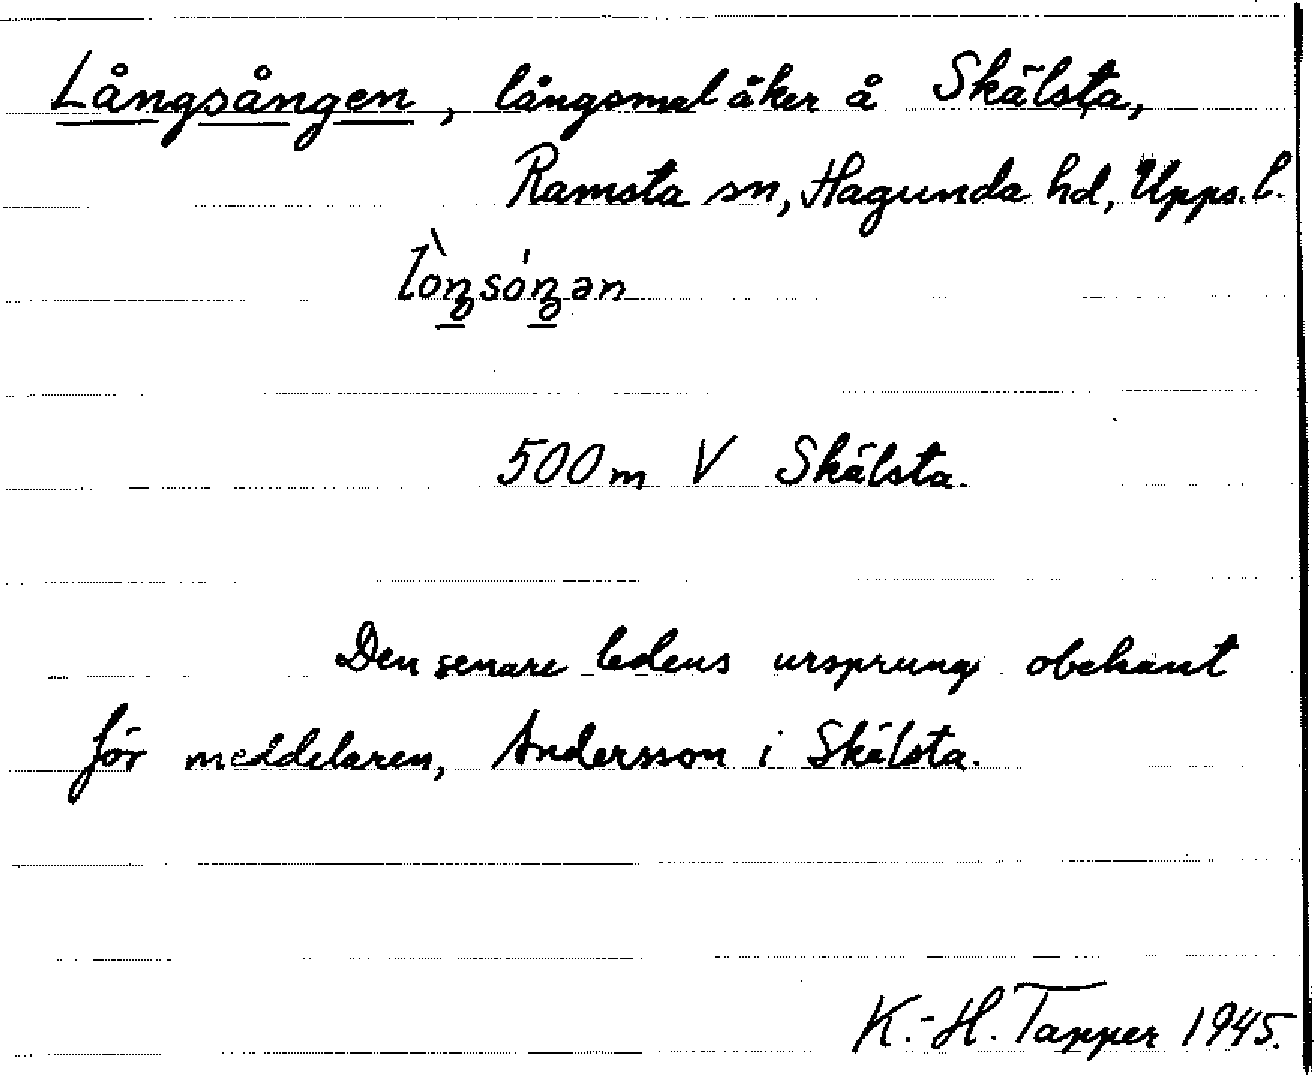 Långsången, långsmal åker å Skälsta,
Ramsta sn, Hagunda hd, Upps. l.
500 m V Skälsta.
Den senare ledens ursprung obekant
för meddelaren, Andersson i Skälsta.
K.-H. Tapper 1945.